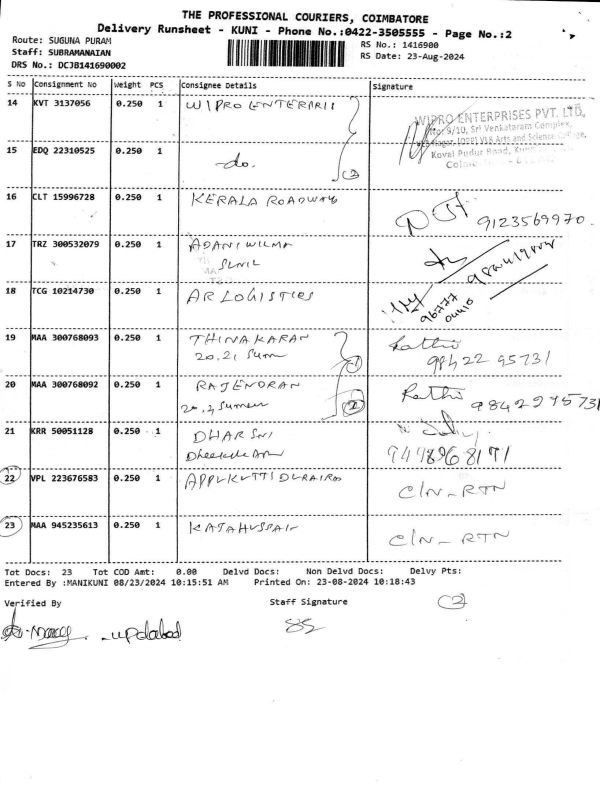 THE PROFESSIONAL COURIERS, COIMBATORE
Delivery Runsheet - KUNI - Phone No.:0422-3505555 - Page No.:2
Route: SUGUNA PURAM
RS No.: 1416900
Staff: SUBRAMANAIAN
RS Date: 23-Aug-2024
DRS No.: DCJB141690002
S No Consignment No Weight PCS Consignee Details Signature
14 KVT 3137056 0.250 1 WIPRO
WIPRO ENTERPRISES PVT. LTD,
9/10, Sri Venkataram Complex,
Arts and Science College,
Kovai Pudur Road,
15 EDQ 22310525 0.250 1 -do.
(2)
16 CLT 15996728 0.250 1 KERALA ROADWAYS
9123569970.
17 TRZ 300532079 0.250 1 ADANI WILMA
18 TCG 10214730 0.250 1 AR LOGISTICS
96777
19 MAA 300768093 0.250 1 THINAKARAN (1) Rathi
20,21 98422 95731
20 MAA 300768092 0.250 1 RAJENDRAN (2) Rathi
9842295731
21 KRR 50051128 0.250 1 DHARSNI
9498968171
22 VPL 223676583 0.250 1 C/N-RTN
23 MAA 945235613 0.250 1 KAJAHUSSAIN C/N-RTN
Tot Docs: 23 Tot COD Amt: 0.00 Delvd Docs: Non Delvd Docs: Delvy Pts:
Entered By :MANIKUNI 08/23/2024 10:15:51 AM Printed On: 23-08-2024 10:18:43
Verified By Staff Signature
updated